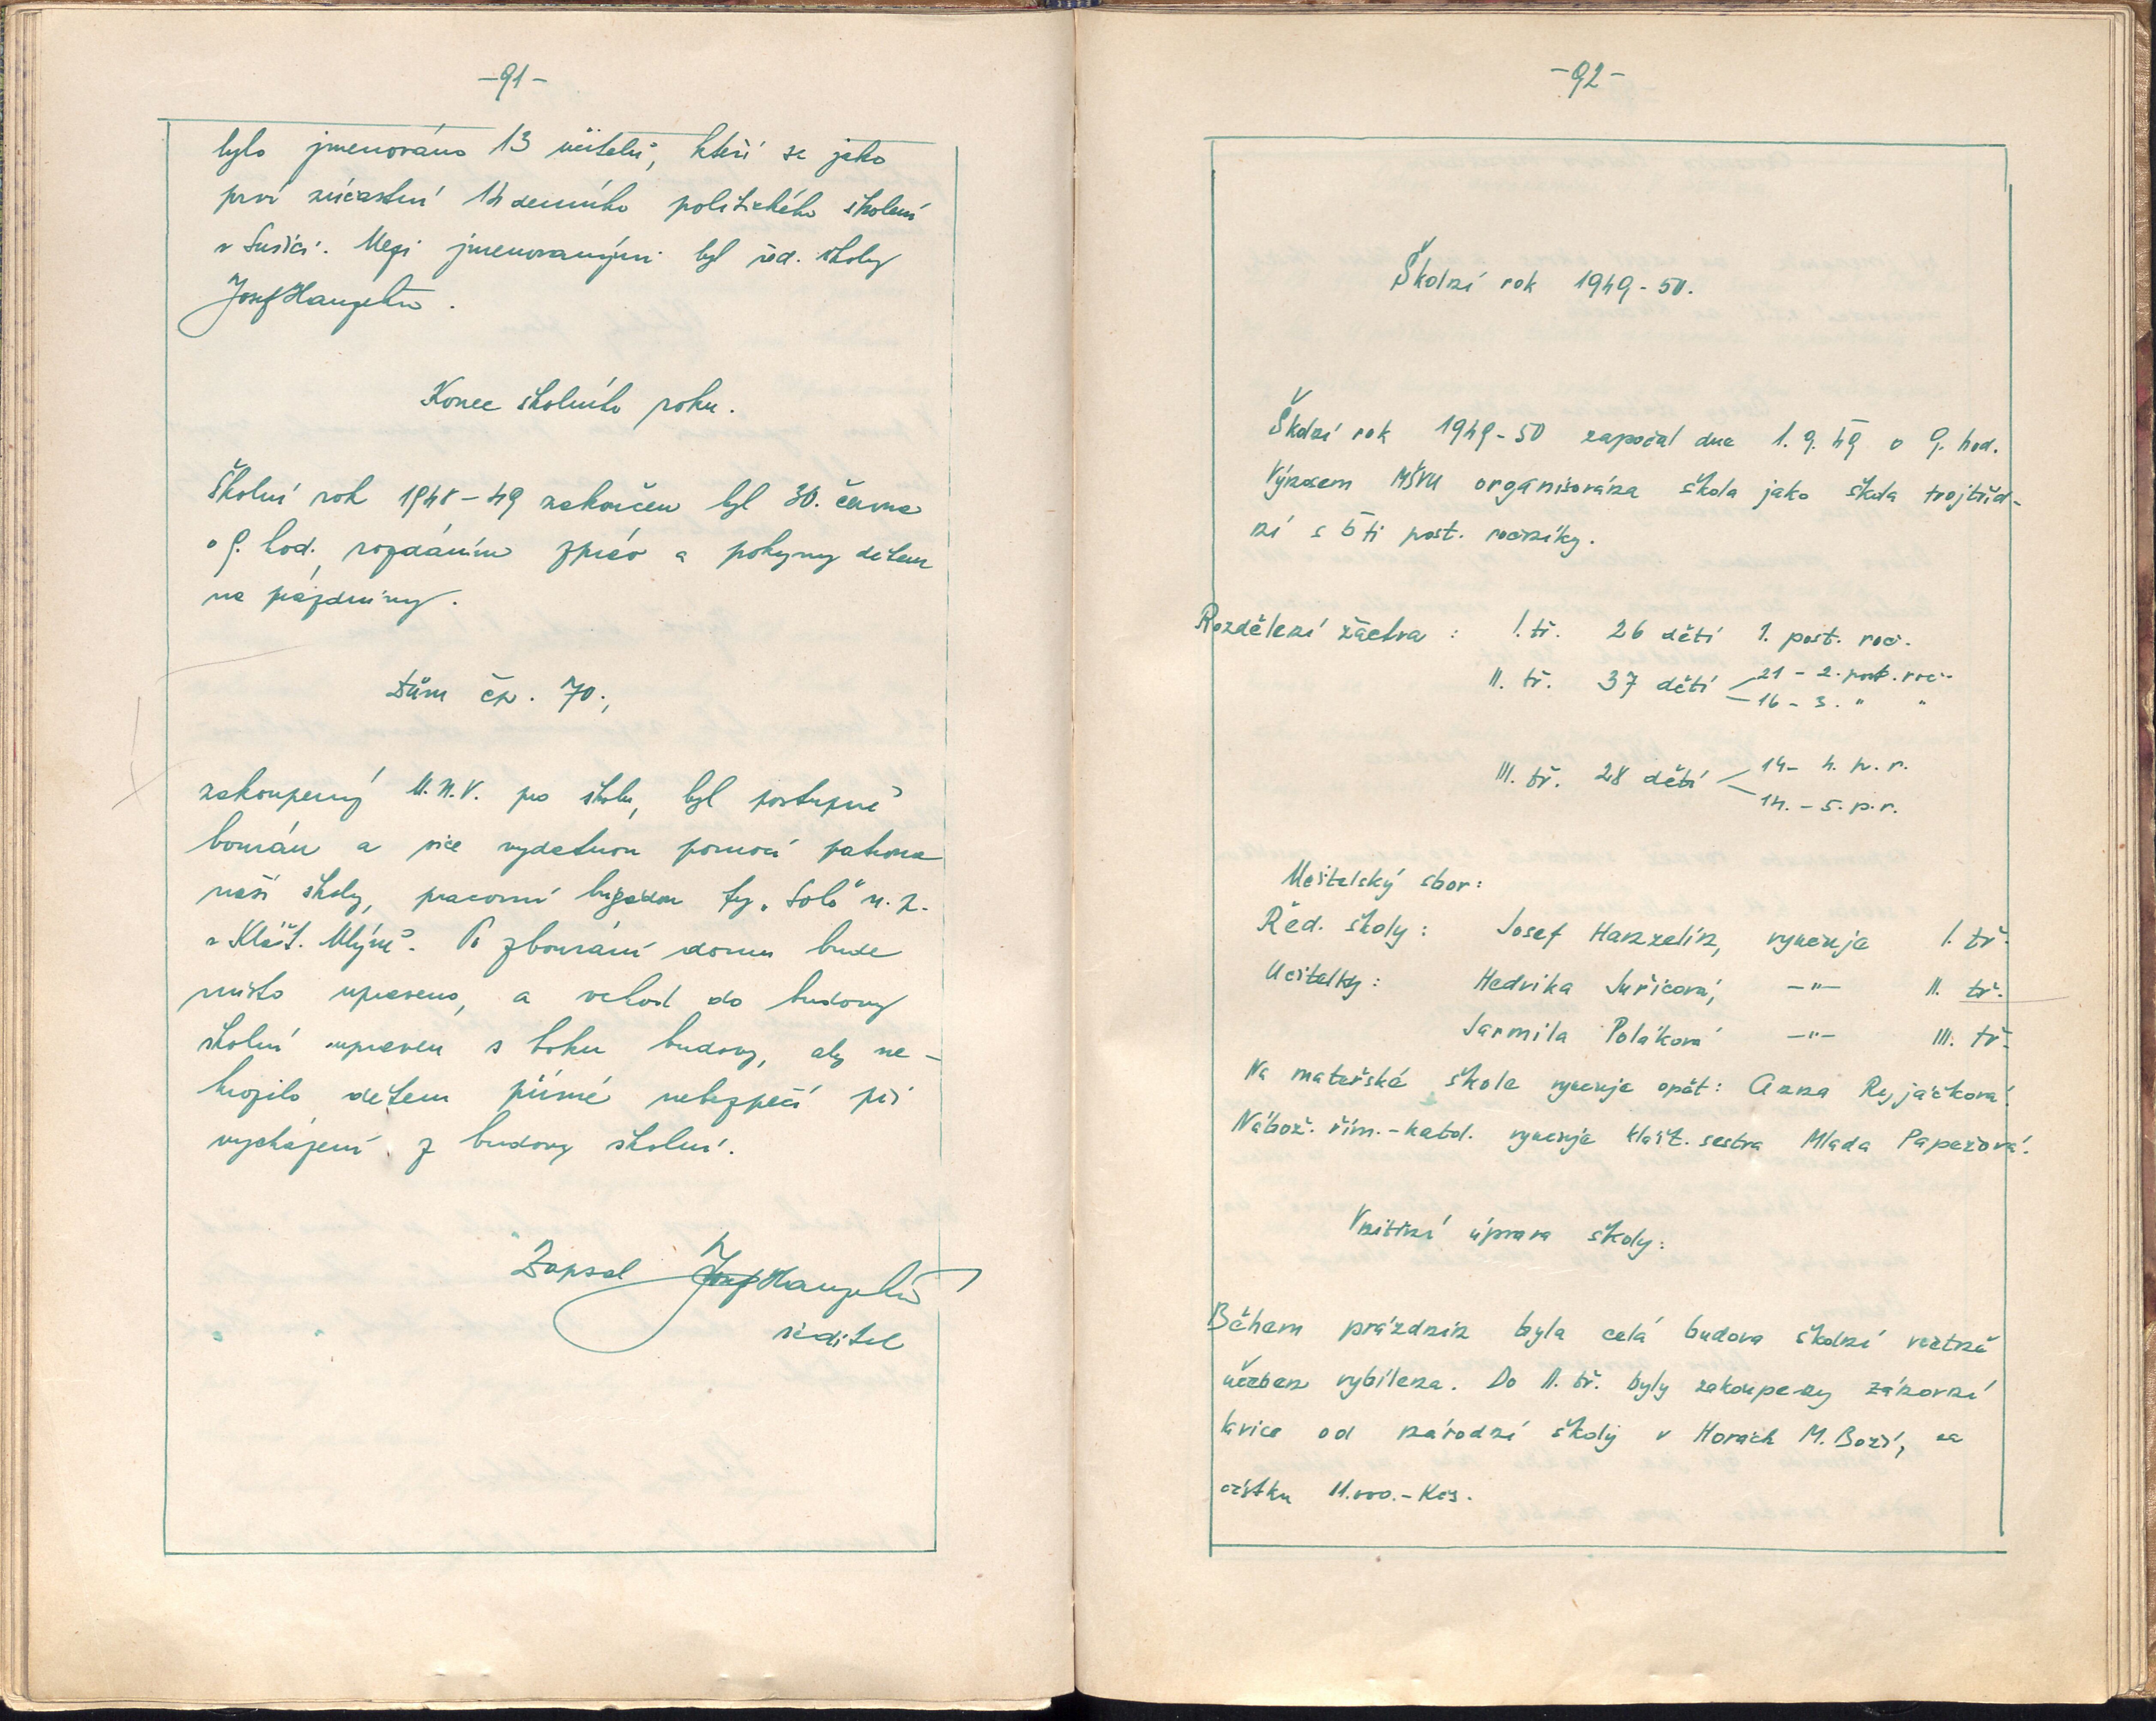 -91-
bylo jmenováno 13 učitelů, kteří se jako
prví zúčastní 14denního politického školení
v Sušici. Mezi jmenovanými byl řed. školy
Josef Hanzelín.
Konec školního roku.
Školní rok 1948-49 zakončen byl 30. června
o 9. hod., rozdáním zpráv a pokyny dětem
na prázdniny.
Dům čp. 70.,
zakoupený M.N.V. pro školu, byl postupně
bourán a více vydatnou pomocí patrona
naší školy, pracovní brigádou fy. „Solo" n. p.
v Klášt. Mlýně. Po zbourání domu bude
místo upraveno, a vchod do budovy
školní upraven s boku budovy, aby ne-
hrozilo dětem přímé nebezpečí při
vycházení z budovy školní.
Zapsal Josef Hanzelín
ředitel
-92-
Školní rok 1949-50.
Školní rok 1949-50 započal dne 1. 9. 49 o 9. hod.
Výnosem MŠVU organisována škola jako škola trojtříd-
ní s 5ti post. ročníky.
Rozdělení žáctva : I. tř. 26 dětí 1. post. roč.
II. tř. 37 dětí 21 - 2. post. roč.
16 - 3. " "
III. tř. 28 dětí 14- 4. p. r.
14. - 5. p. r.
Učitelský sbor:
Řed. školy: Josef Hanzelín, vyučuje I. tř.
Učitelky: Hedvika Juřicová, -"- II. tř.
Jarmila Poláková -"- III. tř.
Na mateřské škole vyučuje opět: Anna Ryjáčková.
Nábož. řím.-katol. vyučuje klášt. sestra Mlada Papežová.
Vnitřní úprava školy:
Během prázdnin byla celá budova školní včetně
učeben vybílena. Do II. tř. byly zakoupeny zánovní
lavice od národní školy v Horách M. Boží, za
částku 11.000.- Kčs.